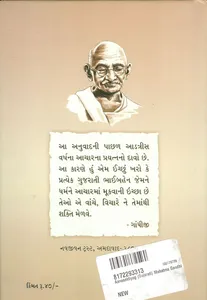 આ અનુવાદની પાછળ આડત્રીસ
વર્ષના આચારના પ્રયત્નનો દાવો છે.
આ કારણે હું એમ ઈચ્છું ખરો કે
પ્રત્યેક ગુજરાતી ભાઈબહેન જેમને
ધર્મને આચારમાં મૂકવાની ઈચ્છા છે
તેઓ એ વાંચે, વિચારે ને તેમાંથી
શક્તિ મેળવે.
- ગાંધીજી
નવજીવન ટ્રસ્ટ, અમદાવાદ-
કિંમત રૂ. ૪૦/-
8172293313
NEW